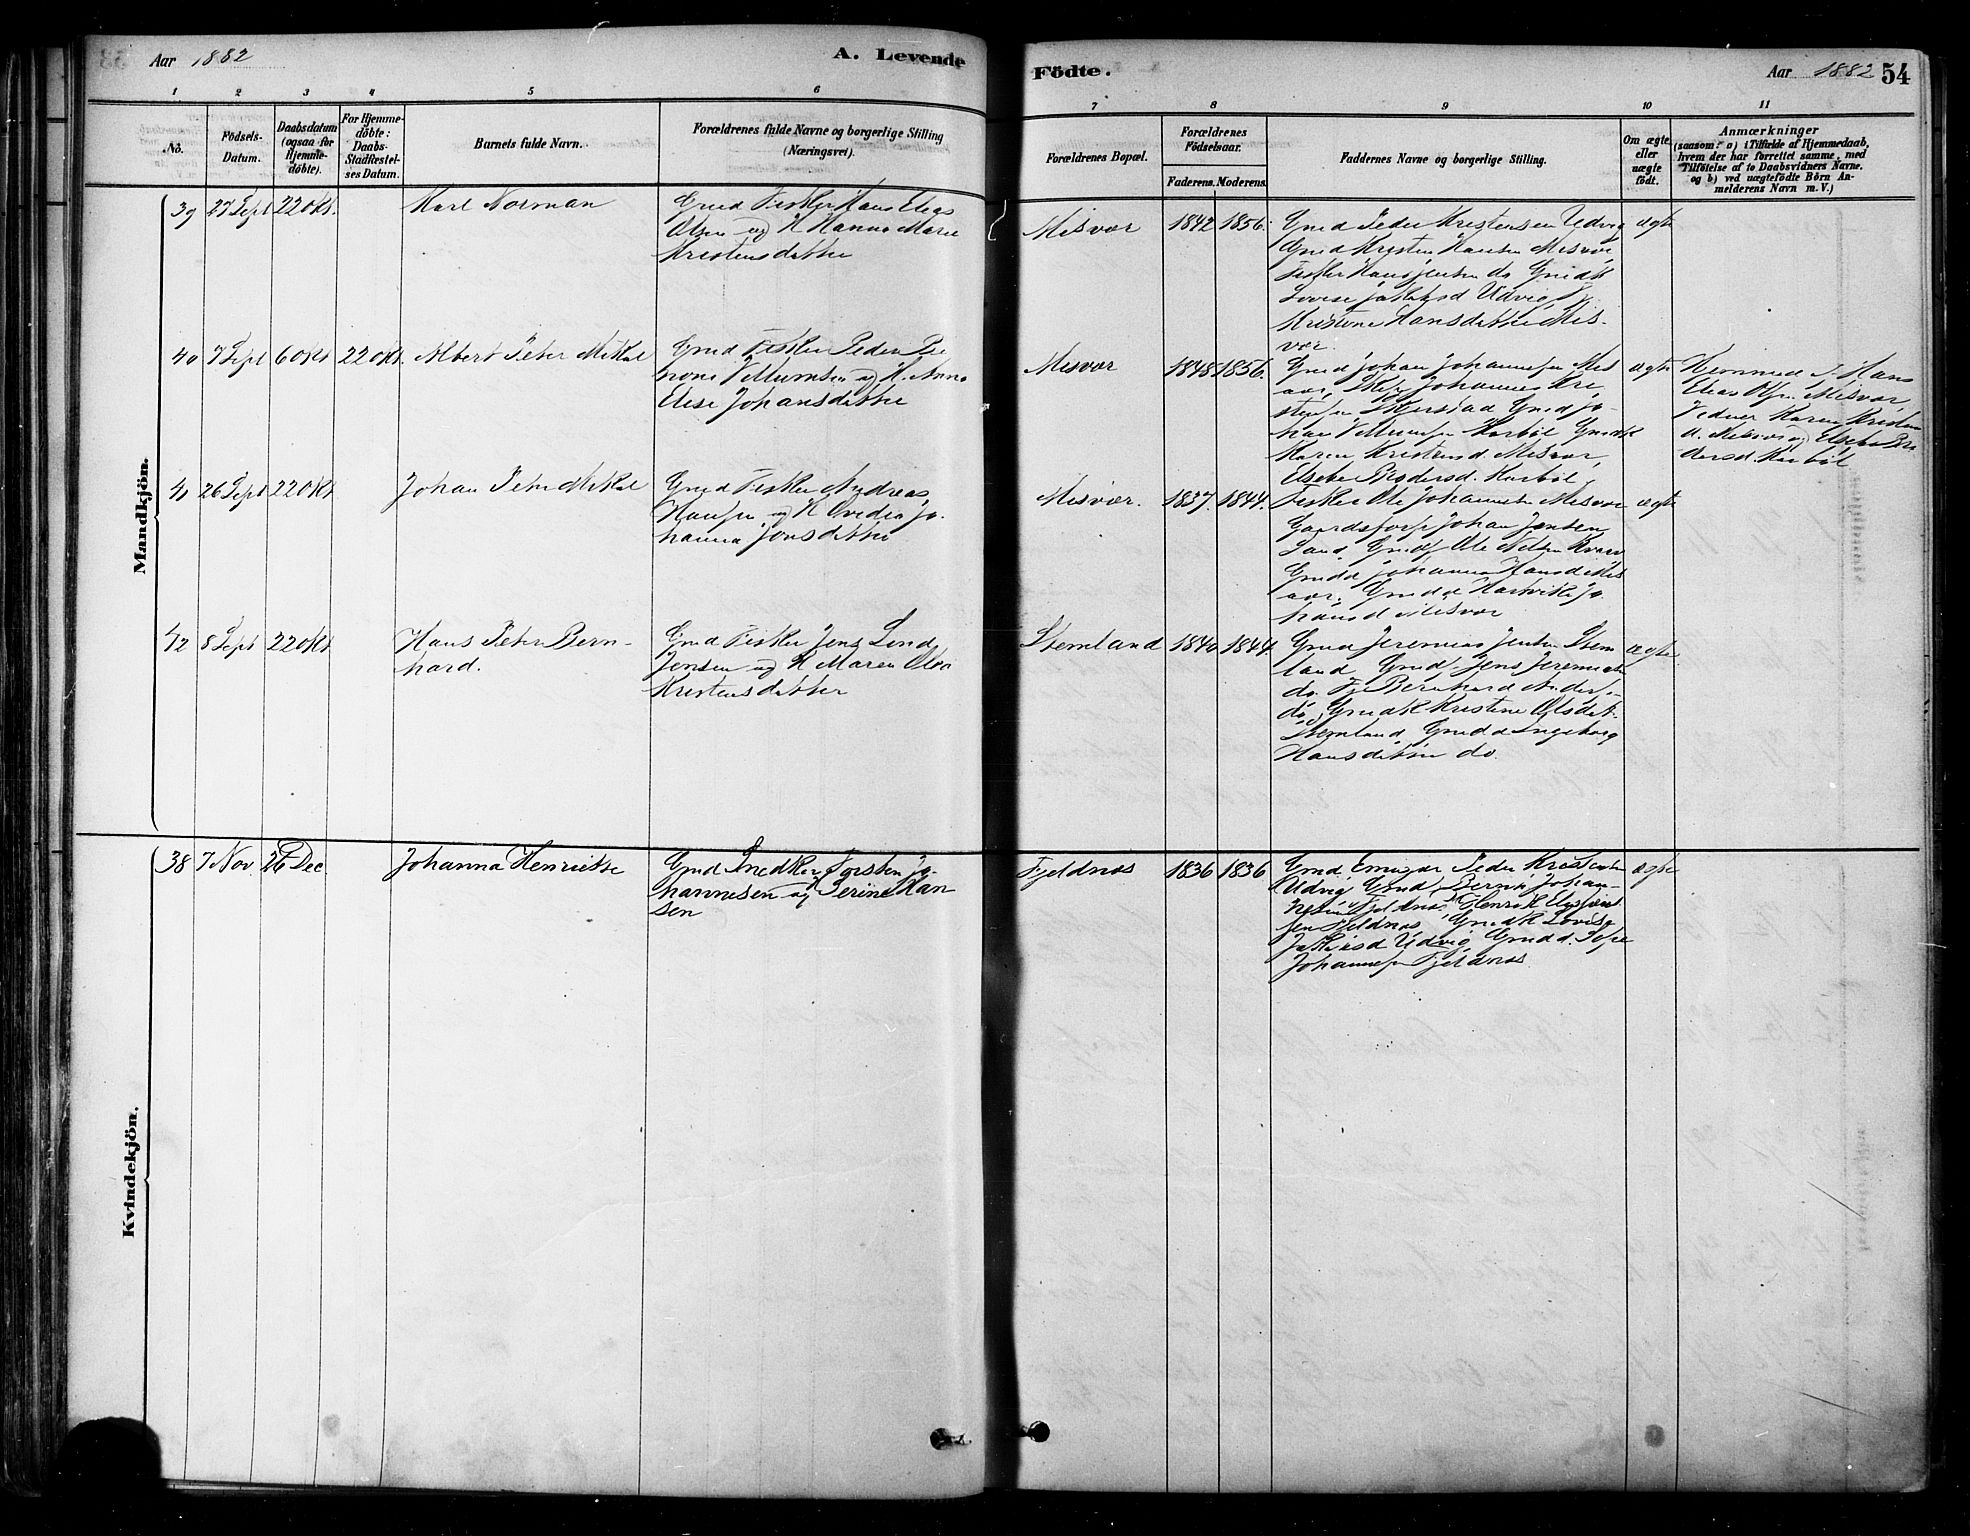 Aar 1882
A. Levende
Födte.
Aar 1882
54
1 2 3 4 5 6 7 8 9 10 11
No.
Födsels-
Datum.
Daabsdatum
(ogsaa for
Hjemme-
döbte).
For Hjemme-
döbte:
Daabs-
Stadfestel-
ses Datum.
Barnets fulde Navn.
Forældrenes fulde Navne og borgerlige Stilling
(Næringsvei).
Forældrenes Bopæl.
Forældrenes
Födselsaar.
Faderens. Moderens.
Faddernes Navne og borgerlige Stilling.
Om ægte
eller
uægte
födt.
Anmærkninger
(saasom: a) i Tilfælde af Hjemmedaab,
hvem der har forrettet samme, med
Tilföielse af to Daabsvidners Navne.
og b) ved uægtefödte Börn An-
melderens Navn m. V.)
Mandkjön.
39 27 Sept 22 Okt. Karl Norman
Gmd Fisker Hans Elias
Olsen og H Hanna Marie
Kristensdatter
Misvær 1842 1856.
Gmd Peder Kristensen Udvig
Gmd Kristen Hansen Misvær
Fisker Hans Jensen do Gmdk
Lovise Jakobsd Udvig
Kristene Hansdatter Mis-
vær
ægte
40 7 Sept 6 Okt 22 Okt. Albert Peter Mikal
Gmd Fisker Peder
Villumsen og H. Anna
Elise Johansdatter
Misvær 1848 1856.
Gmd Johan Johannesen Mis
vær, Johannes Kri
stensen Gmd Jo-
han Villumsen Karbøl Gmdk
Karen Kristensd. Misvær,
Elsebe Pedersd. Karbøl
ægte
Hjemmed. f. Hans
Elias Olsen Misvær
Vidner Karen Kristen
d. Misvær og Elsebe Pe
dersd. Karbøl
41 26 Sept 22 Okt Johan Peter Mikal
Gmd Fisker Andreas
Hansen og H Jo-
hanna Jonsdatter
Misvær. 1837. 1844.
Fisker Ole Johannesen Misvær
Gaardsforp Johan Jensen
Sand, Gmdf Ole Nilsen
Gmdd Johanna Hansd Mis
vær. Gmdd Hartvikke Jo
hansd Misvær
ægte
42 8 Sept 22 Okt Hans Peter Bern-
hard.
Gmd Fisker Jens Lind
Jensen og H Maren
Kristensdatter
Stemland 1840 1844
Gmd Jeremias Jensen Stem
land Gmd. Jens Jeremiasen
do. Bernhard Anders-
do, Gmdk Kristine Olsdat.
Stemland, Gmdd Ingeborg
Hansdatter do.
ægte
Kvindekjön.
38 7 Nov. 26 Dec Johanna Henrikke
Gmd Snedker Torsten Jo-
hannesen og Serine Han
sen
Fjeldnæs 1836 1836
Gmd Peder Kristensen
Udvig Gmd Johan-
nesen Fjeldnæs Henrik
sen Fjeldnæs, Gmdk Lovise
Jakobsd Udvig Gmdd.
Johannesen Fjeldnæs
ægte